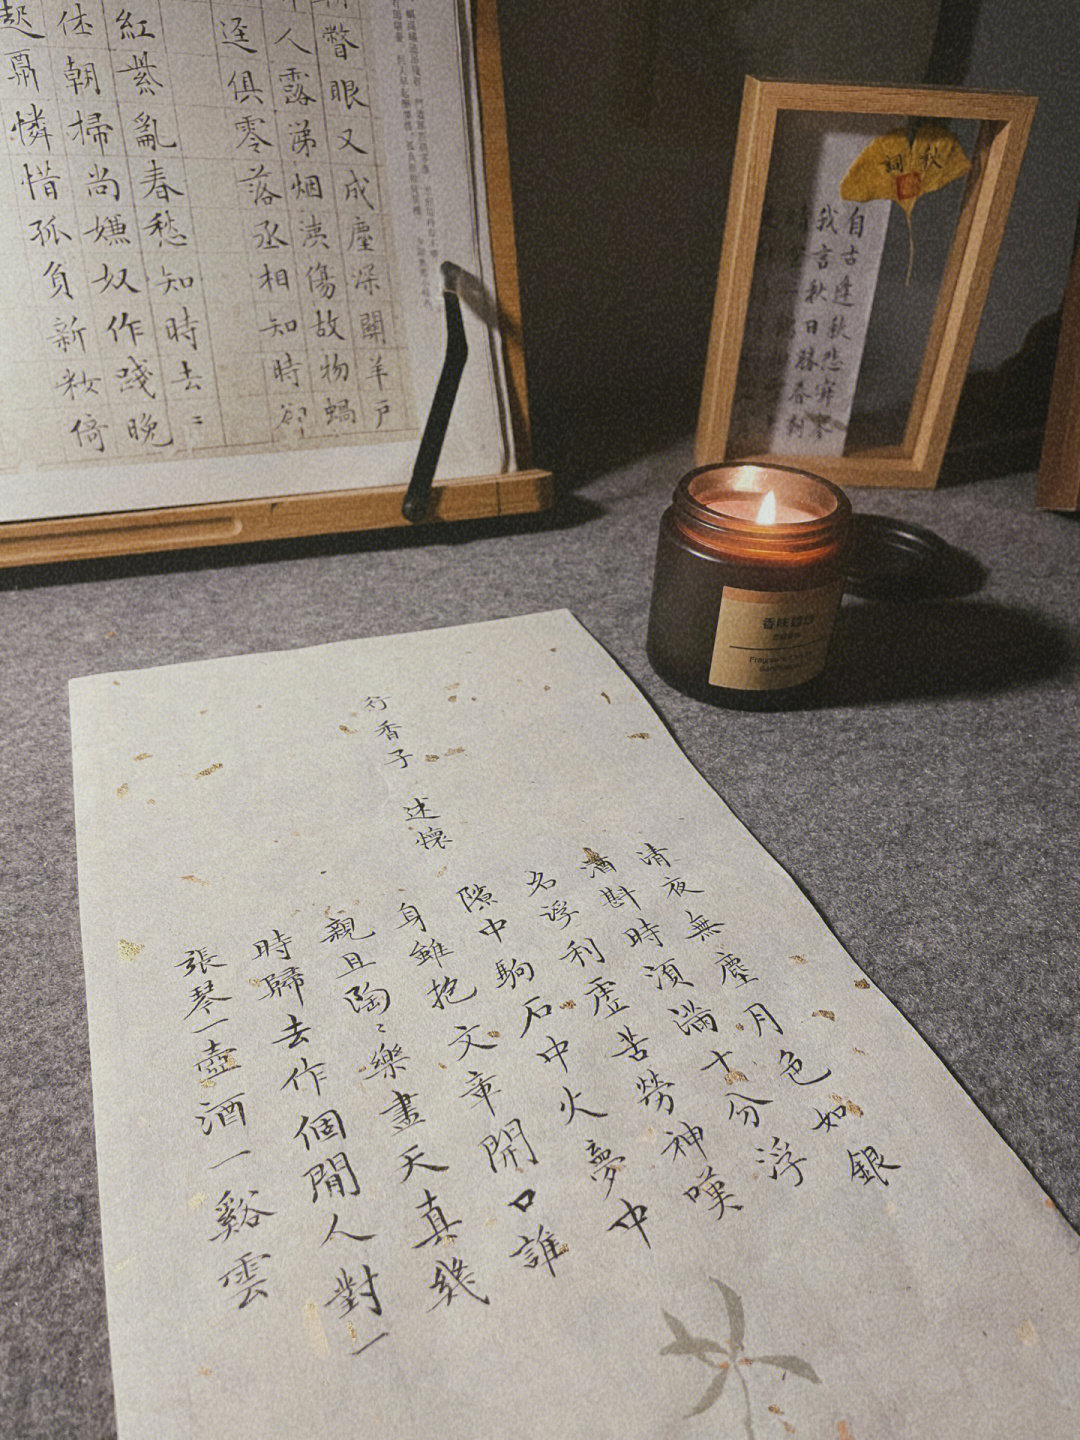 行香子 述懷
清夜無塵月色如銀
酒斟時須滿十分浮
名浮利虛苦勞神嘆
隙中駒石中火夢中
身雖抱文章開口誰
親且陶〻樂盡天真幾
時歸去作個閒人對一
張琴一壺酒一谿雲
瞥眼又成塵深關羊戶
人露涕烟淒傷故物蝸
逕俱零落丞相知時卻
紅紫亂春愁知時去〻
朝掃尚嫌奴作踐晚
起憐惜孤負新妝倚
秋詞
自古逢秋悲寂寥
我言秋日勝春朝
香味